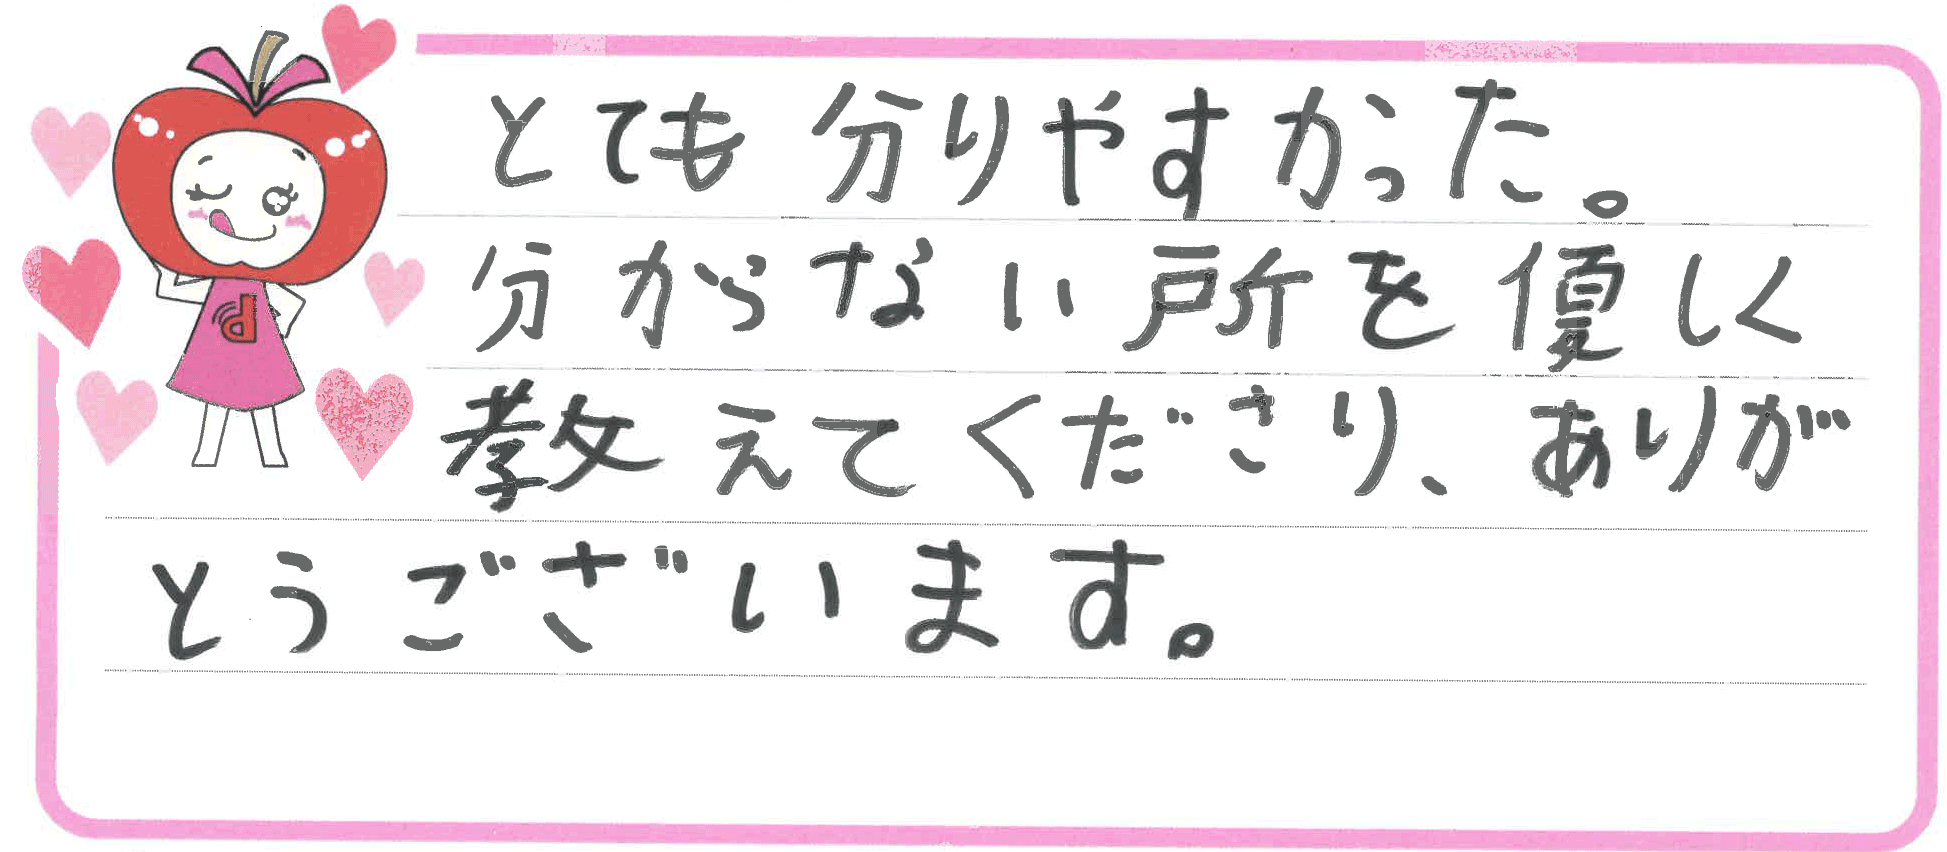 とても分りやすかった。
分からない所を優しく
教えてくださり、ありが
とうございます。